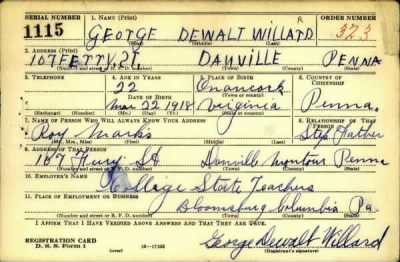 SERIAL NUMBER 1. NAME (Print) ORDER NUMBER
1115 GEORGE DEWALT WILLARD 323
(First) (Middle) (Last)
2. ADDRESS (Print)
107 FERRY ST DANVILLE PENNA
(Number and street or R. F. D. number) (Town) (County) (State)
3. TELEPHONE 4. AGE IN YEARS 5. PLACE OF BIRTH 6. COUNTRY OF CITIZENSHIP
22 Onancock
DATE OF BIRTH (Town or county)
Mar 22 1918 Virginia Penna.
(Exchange) (Number) (Mo.) (Day) (Yr.) (State or country)
7. NAME OF PERSON WHO WILL ALWAYS KNOW YOUR ADDRESS 8. RELATIONSHIP OF THAT PERSON
Roy Marks Step Father
(Mr., Mrs., Miss) (First) (Middle) (Last)
9. ADDRESS OF THAT PERSON
107 Ferry St Danville Montour Penna
(Number and street or R. F. D. number) (Town) (County) (State)
10. EMPLOYER'S NAME
College State Teachers
11. PLACE OF EMPLOYMENT OR BUSINESS
Bloomsburg Columbia Pa.
(Number and street or R. F. D. number) (Town) (County) (State)
I AFFIRM THAT I HAVE VERIFIED ABOVE ANSWERS AND THAT THEY ARE TRUE.
REGISTRATION CARD
D. S. S. Form 1 16—17105 George Dewalt Willard
(Registrant's signature)